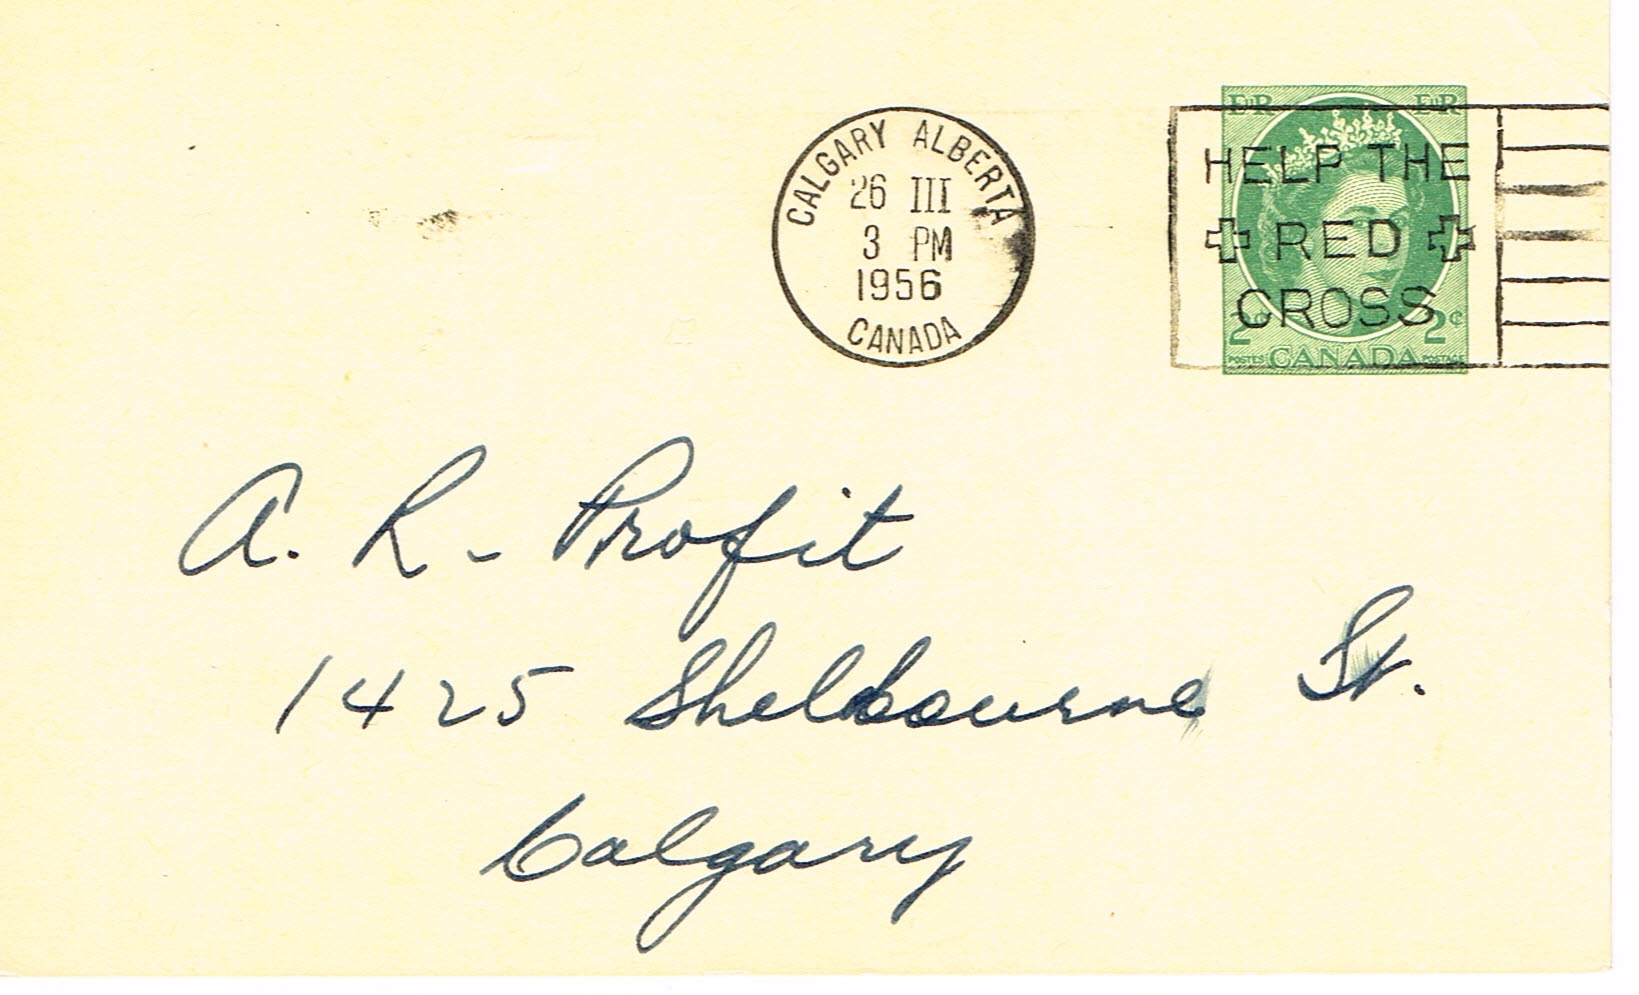 CALGARY ALBERTA
26 III
3 PM
1956
CANADA
EIIR EIIR
HELP THE
RED
CROSS
2¢ 2¢
POSTES CANADA POSTAGE
A. R. Profit
1425 Shelbourne St.
Calgary